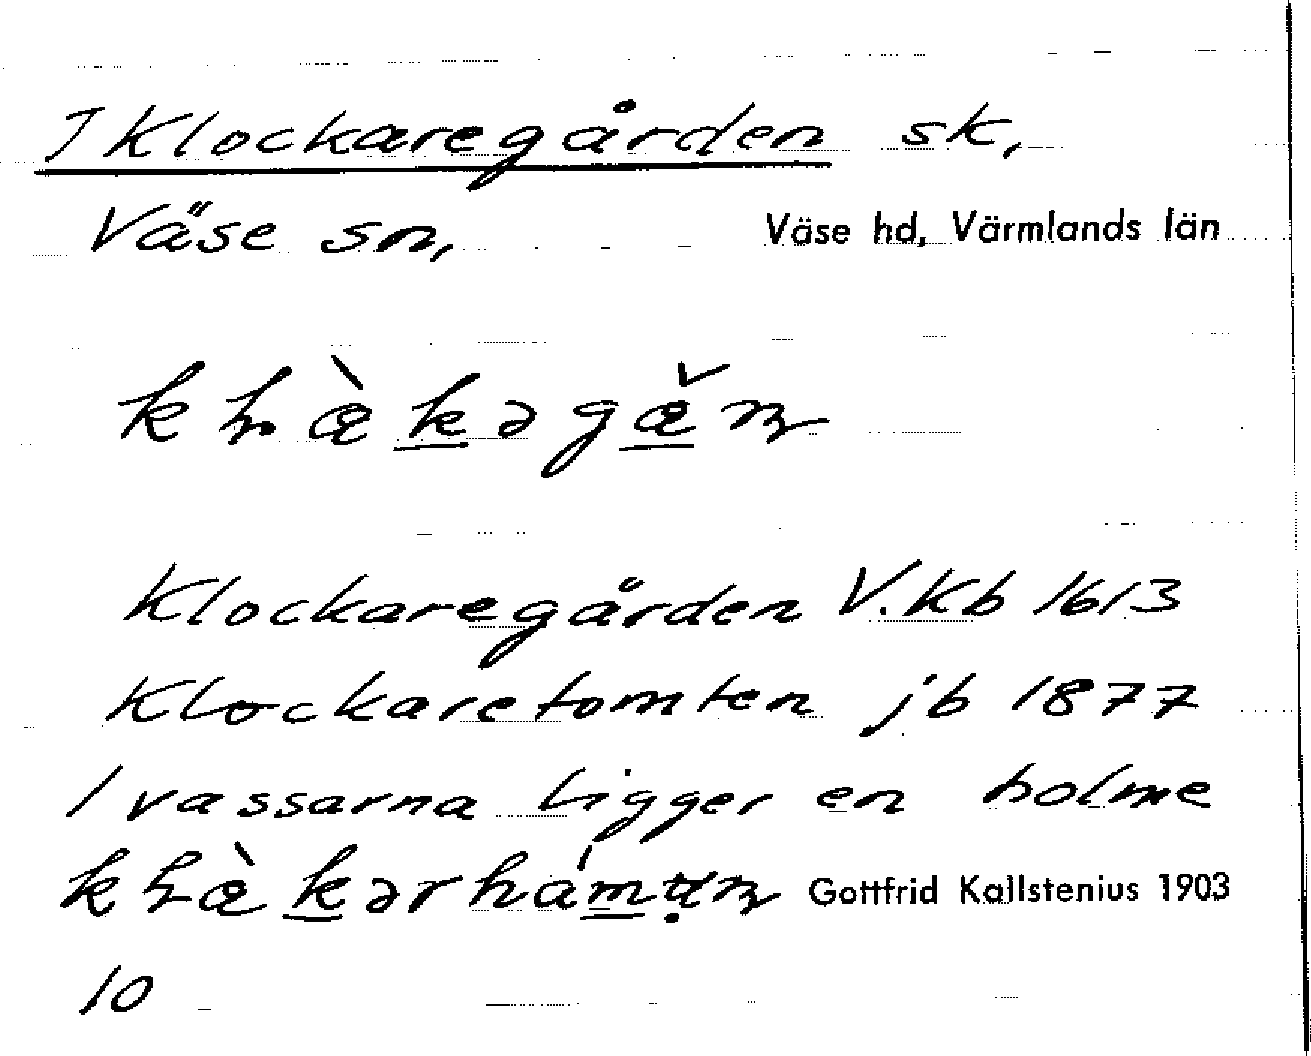 I Klockaregården sk,
Väse sn, Väse hd, Värmlands län
Klockaregården V.Kb 1613
Klockaretomten jb 1877
I vassarna ligger en holme
Gottfrid Kallstenius 1903
10